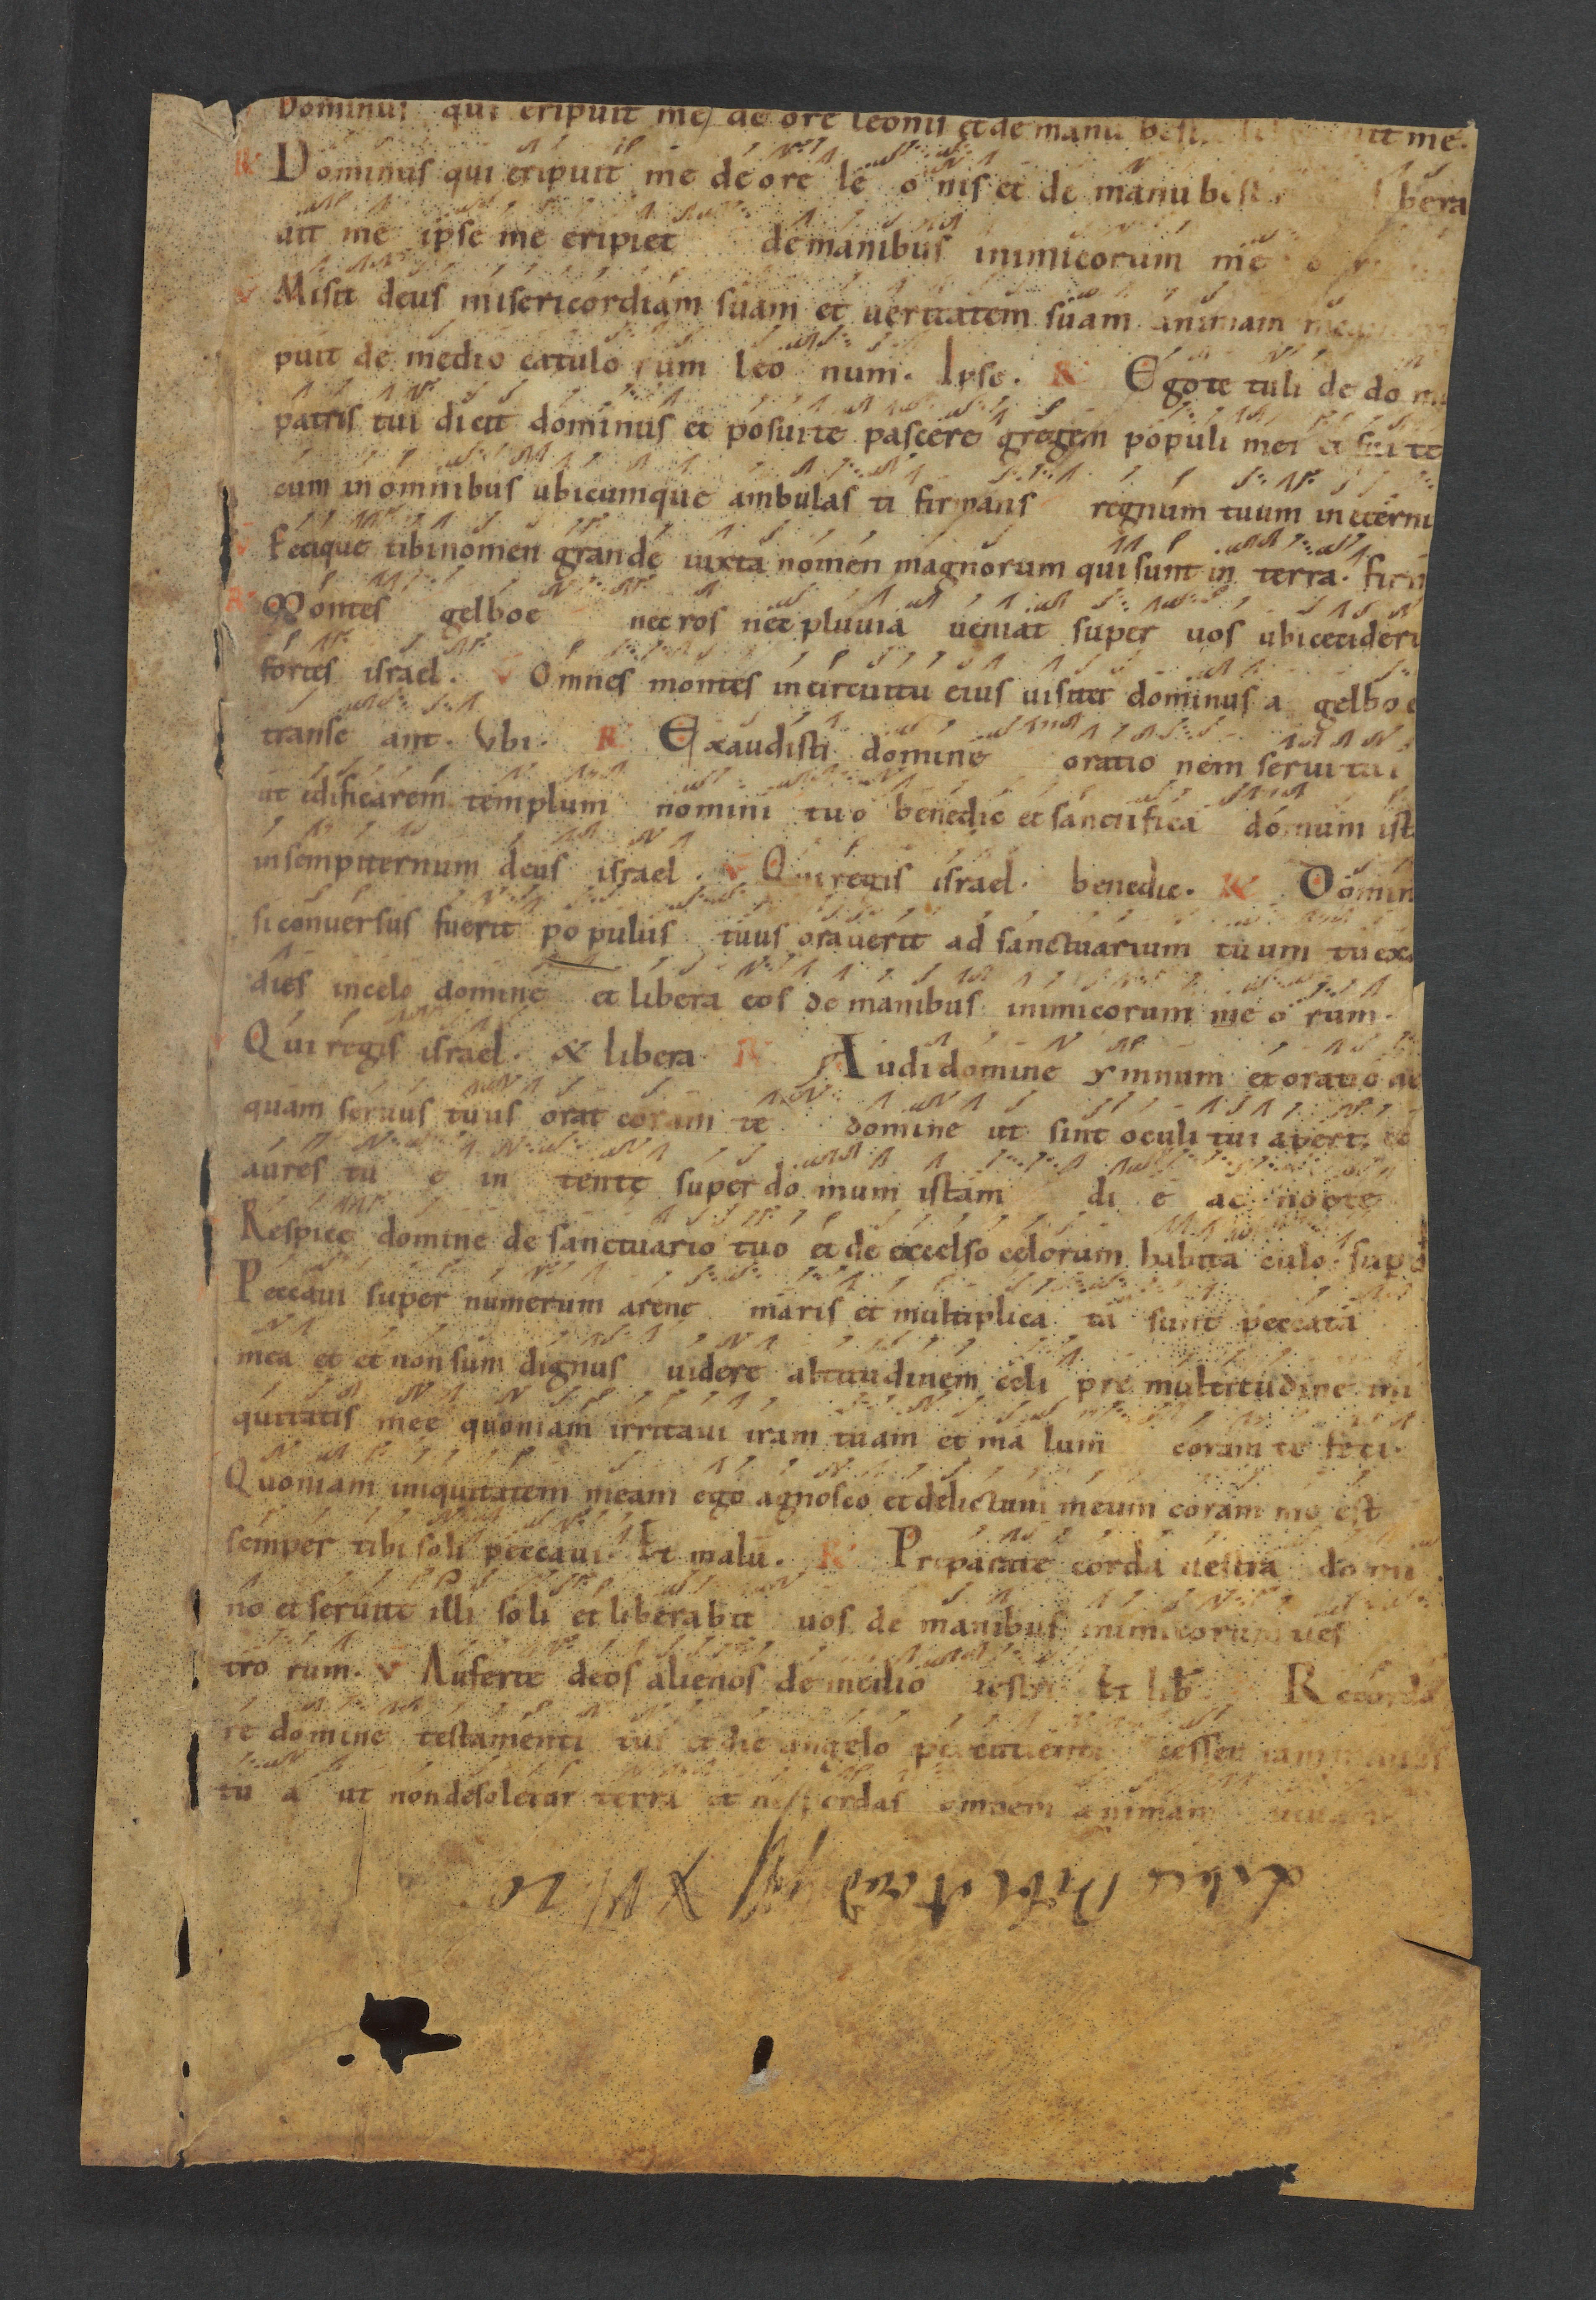 Dominus qui eripuit me de ore leonis et de manu best me.
R Dominus qui eripuit me de ore le o nis et de manu best bera
uit me ipse me eripiet de manibus inimicorum me o
V Misit deus misericordiam suam et ueritatem suam animam
puit de medio catulo rum leo num. Ipse. R Ego te tuli de do mo
patris tui dicit dominus et posui te pascere gregem populi mei et fui te
cum in omnibus ubicumque ambulasti firmans regnum tuum in eterni
V Fecique tibi nomen grande iuxta nomen magnorum qui sunt in terra. firm
R Montes gelboe nec ros nec pluuia ueniat super uos ubi cecideri
fortes israel. V Omnes montes in circuitu eius uisitet dominus a gelboe
transe ant. Vbi. R Exaudisti domine oratio nem serui tui
ut edificarem templum nomini tuo benedic et sanctifica domum ist
in sempiternum deus israel. V Qui regis israel. benedic. R Domin
si conuersus fuerit populus tuus orauerit ad sanctuarium tuum tu exa
dies in celo domine et libera eos de manibus inimicorum me o rum.
V Qui regis israel. & libera R Audi domine ymnum et oratio ne
quam seruus tuus orat coram te domine ut sint oculi tui aperti et
aures tu e in tente super do mum istam di e ac nocte
Respice domine de sanctuario tuo et de excelso celorum habita culo. sup d
Peccaui super numerum arene maris et multiplica ta sunt peccata
mea et et non sum dignus uidere altitudinem celi pre multitudine ini
quitatis mee quoniam irritaui iram tuam et ma lum coram te feci.
Quoniam iniquitatem meam ego agnosco et delictum meum coram me est
semper tibi soli peccaui. Et malū. R Preparate corda uestra domi
no et seruite illi soli et liberabit uos de manibus inimicorum ues
tro rum. V Auferte deos alienos de medio uestri Et lib Recorda
re domine testamenti tui et dic angelo percutienti cesset iam manus
tu a ut non desoletur terra et ne perdas omnem animam